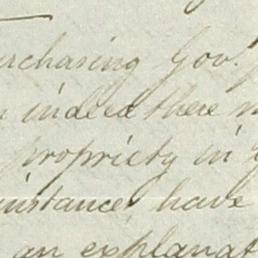 urchasing Gov.
indeed there
propriety in
instances have
an explanat